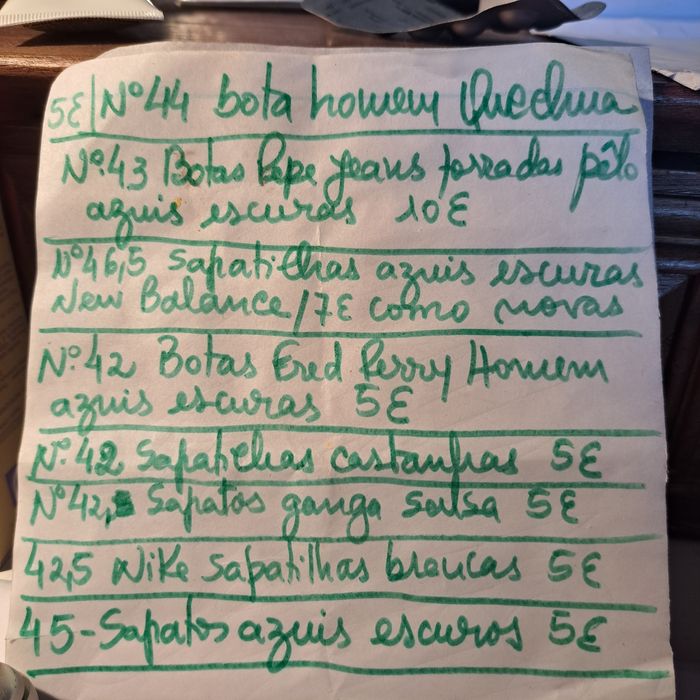 5€/Nº44 bota homem Quechua
Nº43 Botas Pepe Jeans forradas pêlo
azuis escuras 10€
Nº46,5 Sapatilhas azuis escuras
New Balance/7€ como novas
Nº42 Botas Fred Perry Homem
azuis escuras 5€
Nº42 Sapatilhas castanhas 5€
Nº42, Sapatos ganga salsa 5€
42,5 Nike Sapatilhas brancas 5€
45-Sapatos azuis escuros 5€